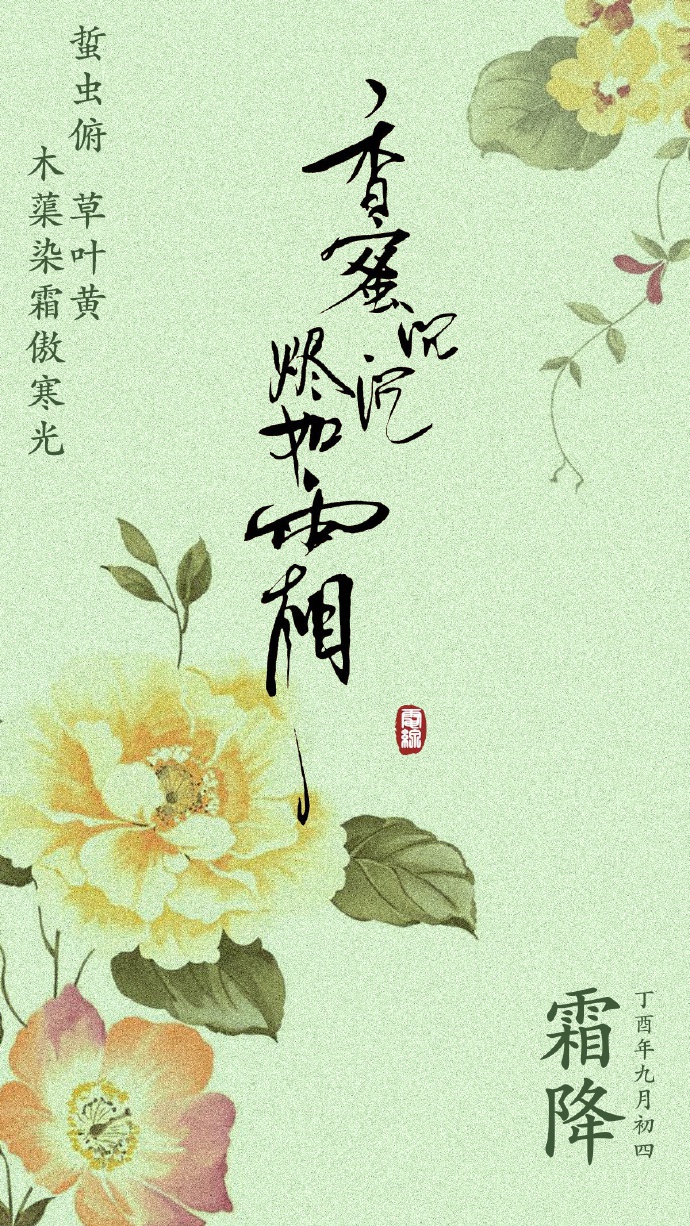 蜇虫俯 草叶黄
木蕖染霜傲寒光
香蜜沉沉
烬如霜
電線
霜降
丁酉年九月初四